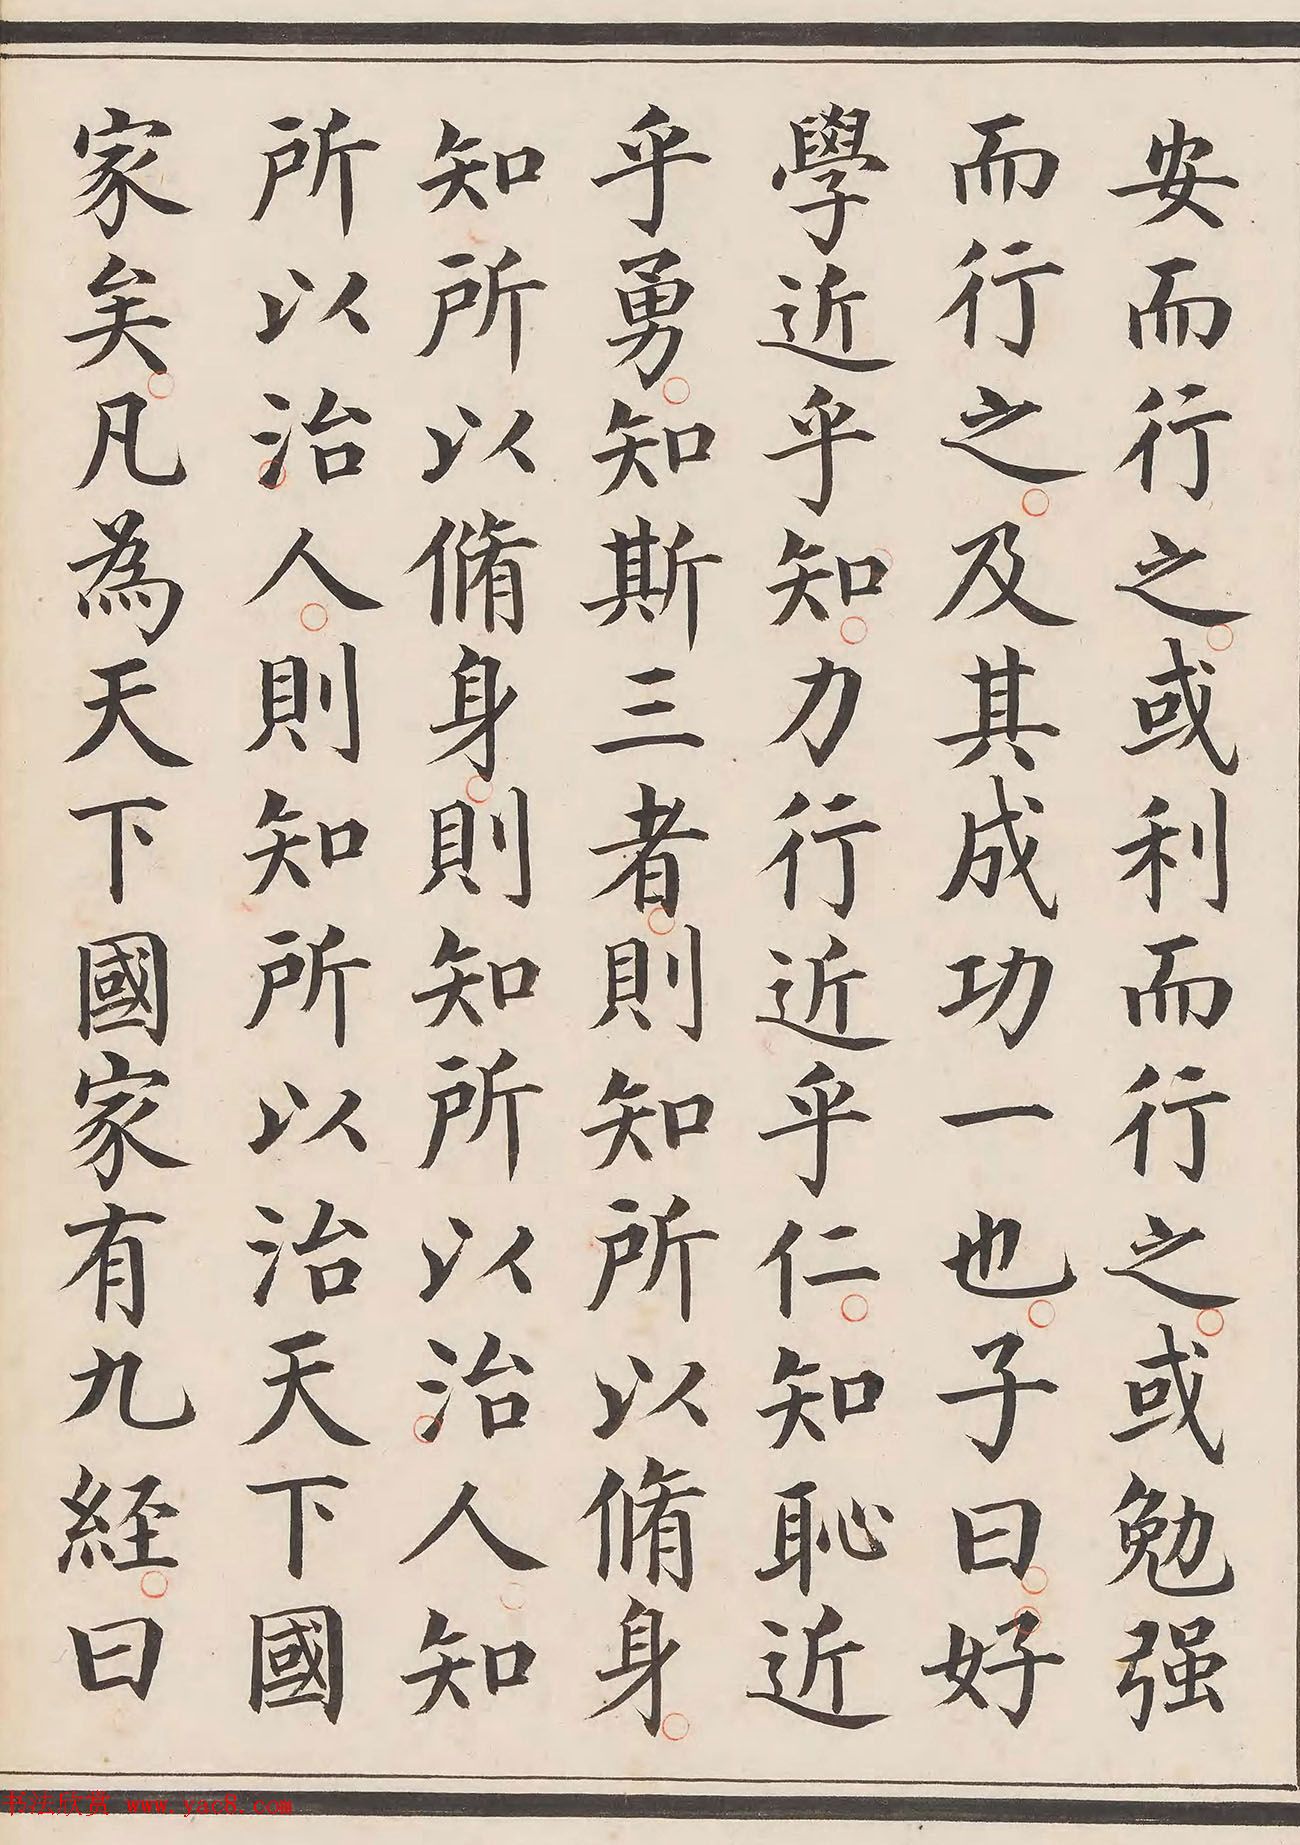 安而行之或利而行之或勉强
而行之及其成功一也子曰好
學近乎知力行近乎仁知恥近
乎勇知斯三者則知所以脩身
知所以脩身則知所以治人知
所以治人則知所以治天下國
家矣凡為天下國家有九經曰
书法欣赏 www.yac8.com